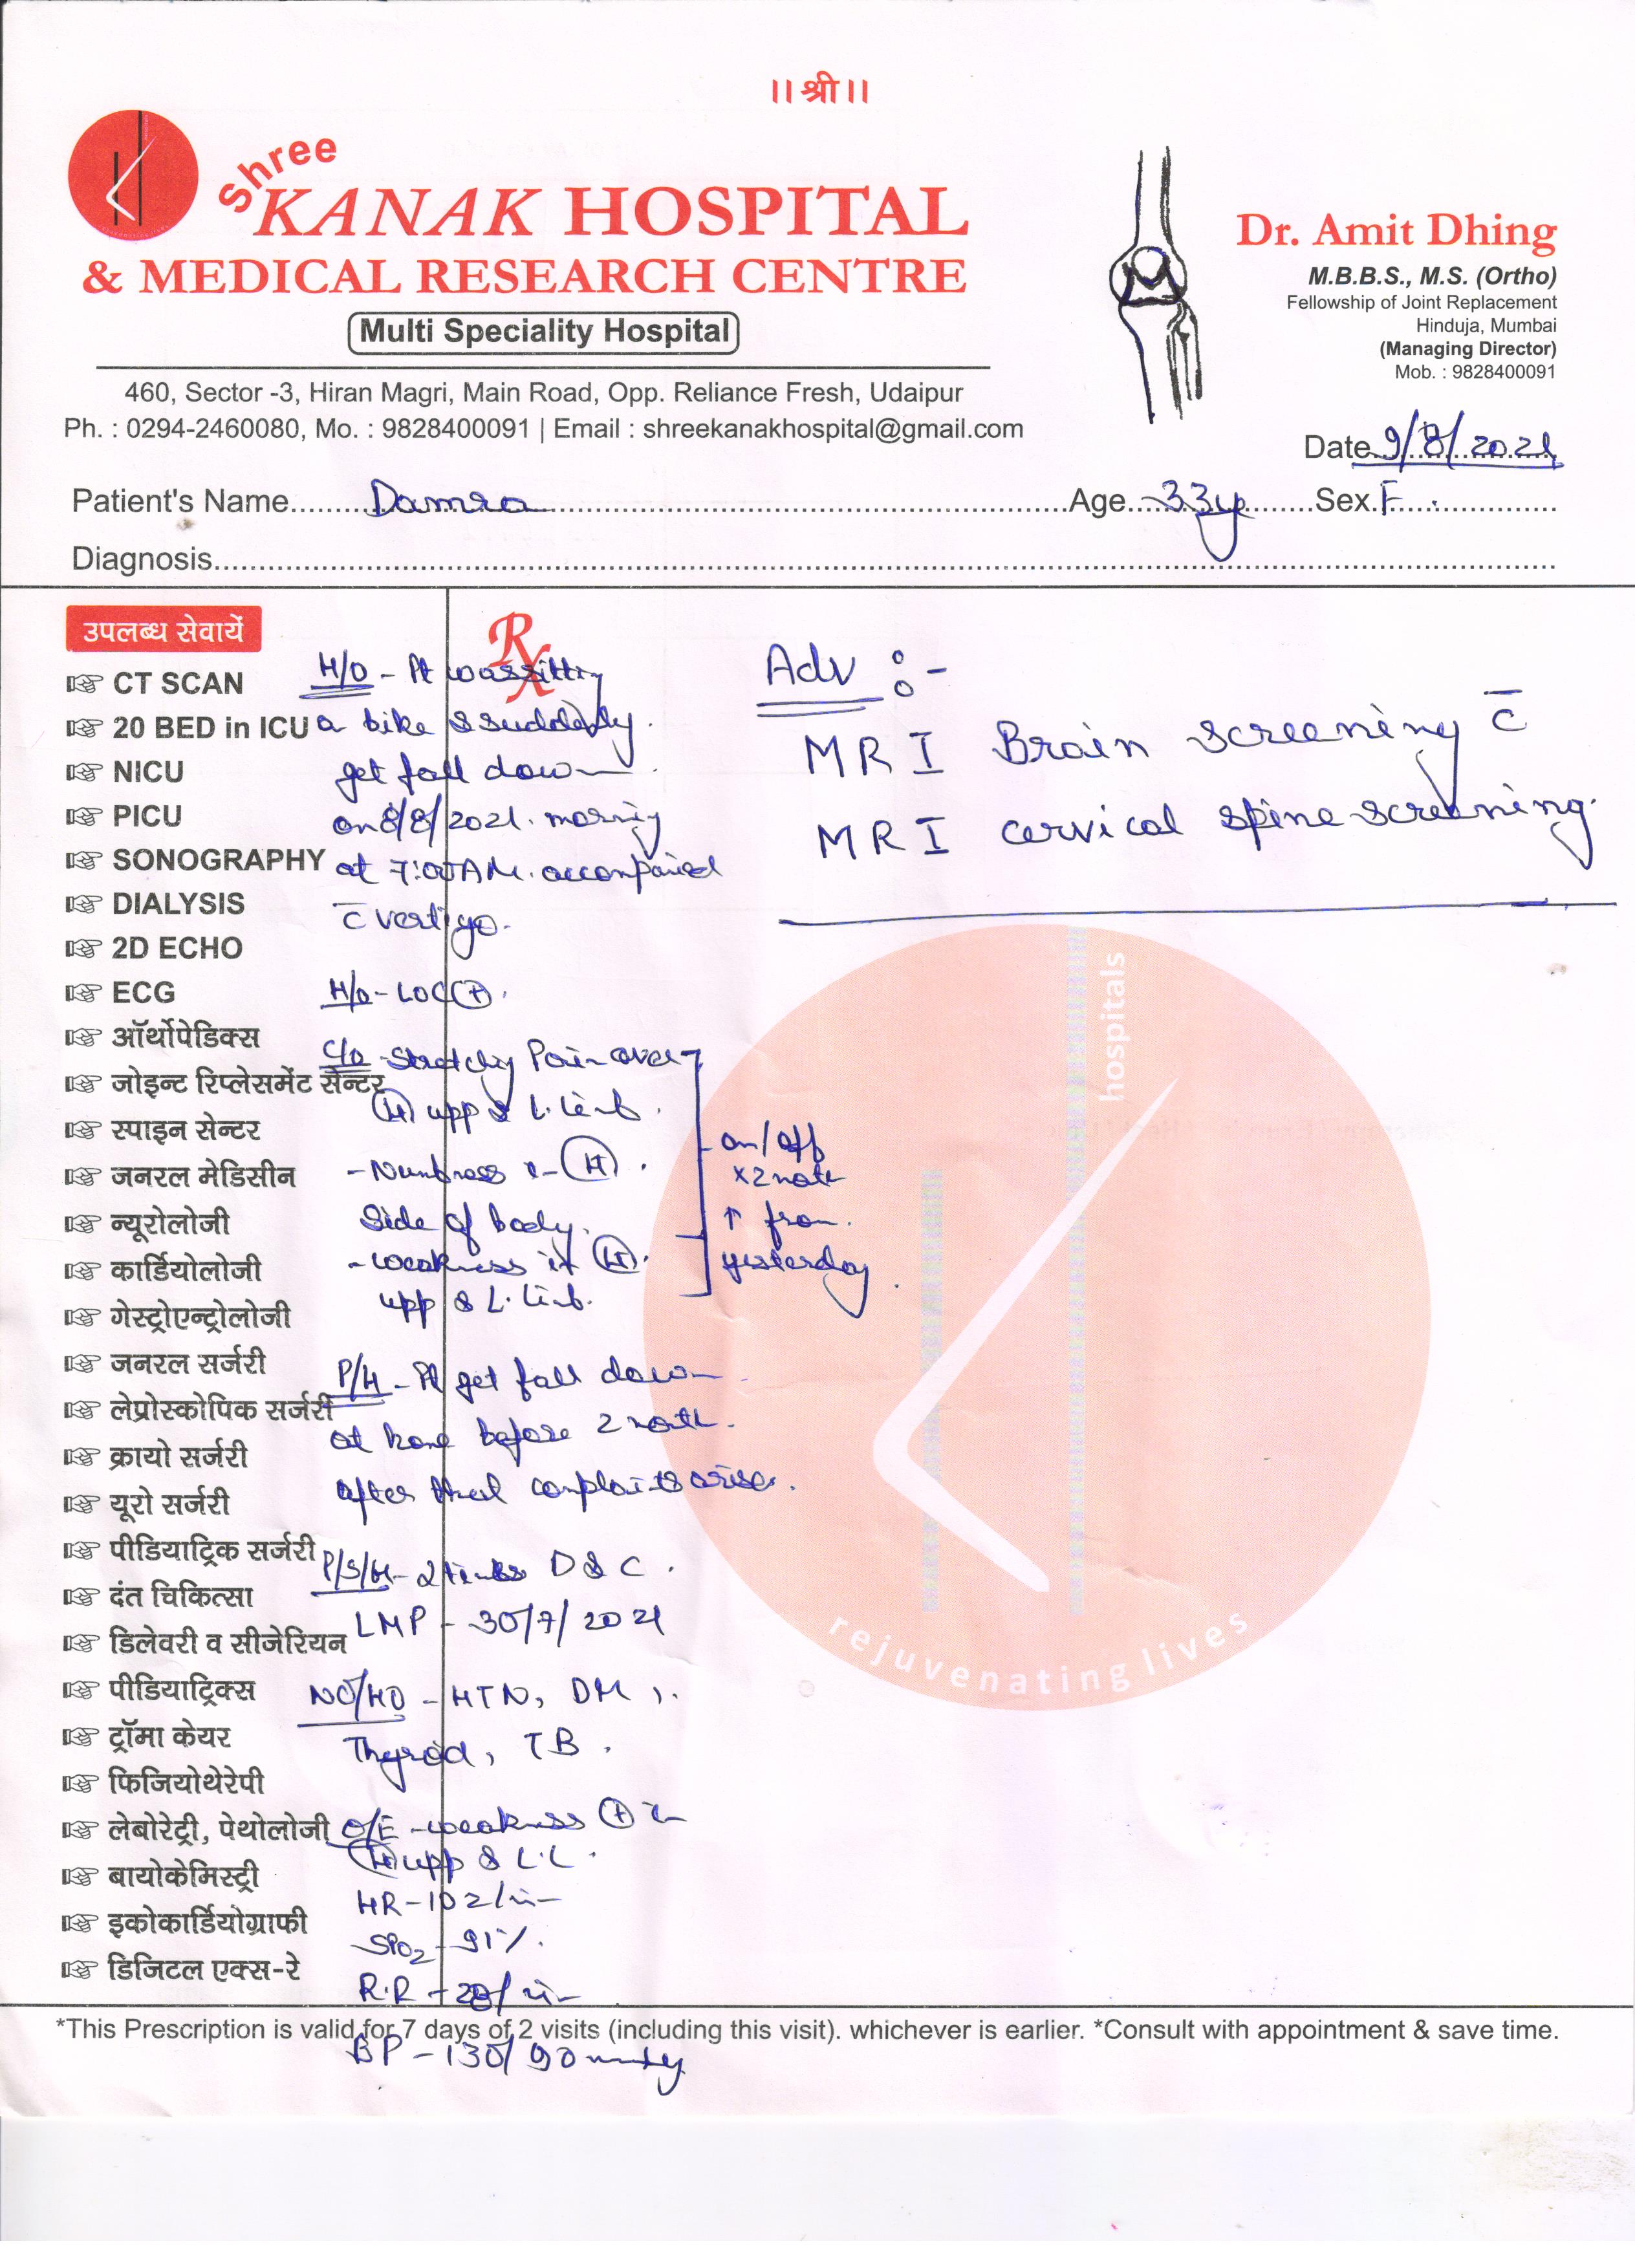 ।। श्री ।।
Shree
KANAK HOSPITAL
& MEDICAL RESEARCH CENTRE
Multi Speciality Hospital
460, Sector -3, Hiran Magri, Main Road, Opp. Reliance Fresh, Udaipur
Ph. : 0294-2460080, Mo. : 9828400091 | Email : shreekanakhospital@gmail.com
Dr. Amit Dhing
M.B.B.S., M.S. (Ortho)
Fellowship of Joint Replacement
Hinduja, Mumbai
(Managing Director)
Mob. : 9828400091
Date 9/8/2021
Patient's Name Damra Age 33y Sex F
Diagnosis
उपलब्ध सेवायें
CT SCAN
20 BED in ICU
NICU
PICU
SONOGRAPHY
DIALYSIS
2D ECHO
ECG
ऑर्थोपेडिक्स
जोइन्ट रिप्लेसमेंट सेन्टर
स्पाइन सेन्टर
जनरल मेडिसीन
न्यूरोलोजी
कार्डियोलोजी
गेस्ट्रोएन्ट्रोलोजी
जनरल सर्जरी
लेप्रोस्कोपिक सर्जरी
क्रायो सर्जरी
यूरो सर्जरी
पीडियाट्रिक सर्जरी
दंत चिकित्सा
डिलेवरी व सीजेरियन
पीडियाट्रिक्स
ट्रॉमा केयर
फिजियोथेरेपी
लेबोरेट्री, पेथोलोजी
बायोकेमिस्ट्री
इकोकार्डियोग्राफी
डिजिटल एक्स-रे
Rx
H/O - Pt was sitting
a bike & suddenly
get fall down
on 8/8/2021 morning
at 7:00 AM accompanied
c̄ vertigo.
H/o - LOC (+)
C/o - Pain over
upp & L. limb
- Numbness
Side of body
- weakness in
upp & L. limb.
on/off
x 2
↑ from
yesterday
P/H - Pt get fall down
at home before 2 month
after that complaints arise.
P/S/H - 2 times D & C.
LMP - 30/7/2021
NO/HO - HTN, DM,
Thyroid, TB.
O/E - weakness (+) in
upp & L.L.
HR - 102/min
SPO2 - 91%
R.R - /min
BP - 130/90 mmHg
Adv :-
MRI Brain screening c̄
MRI cervical spine screening.
hospitals
rejuvenating lives
*This Prescription is valid for 7 days of 2 visits (including this visit). whichever is earlier. *Consult with appointment & save time.